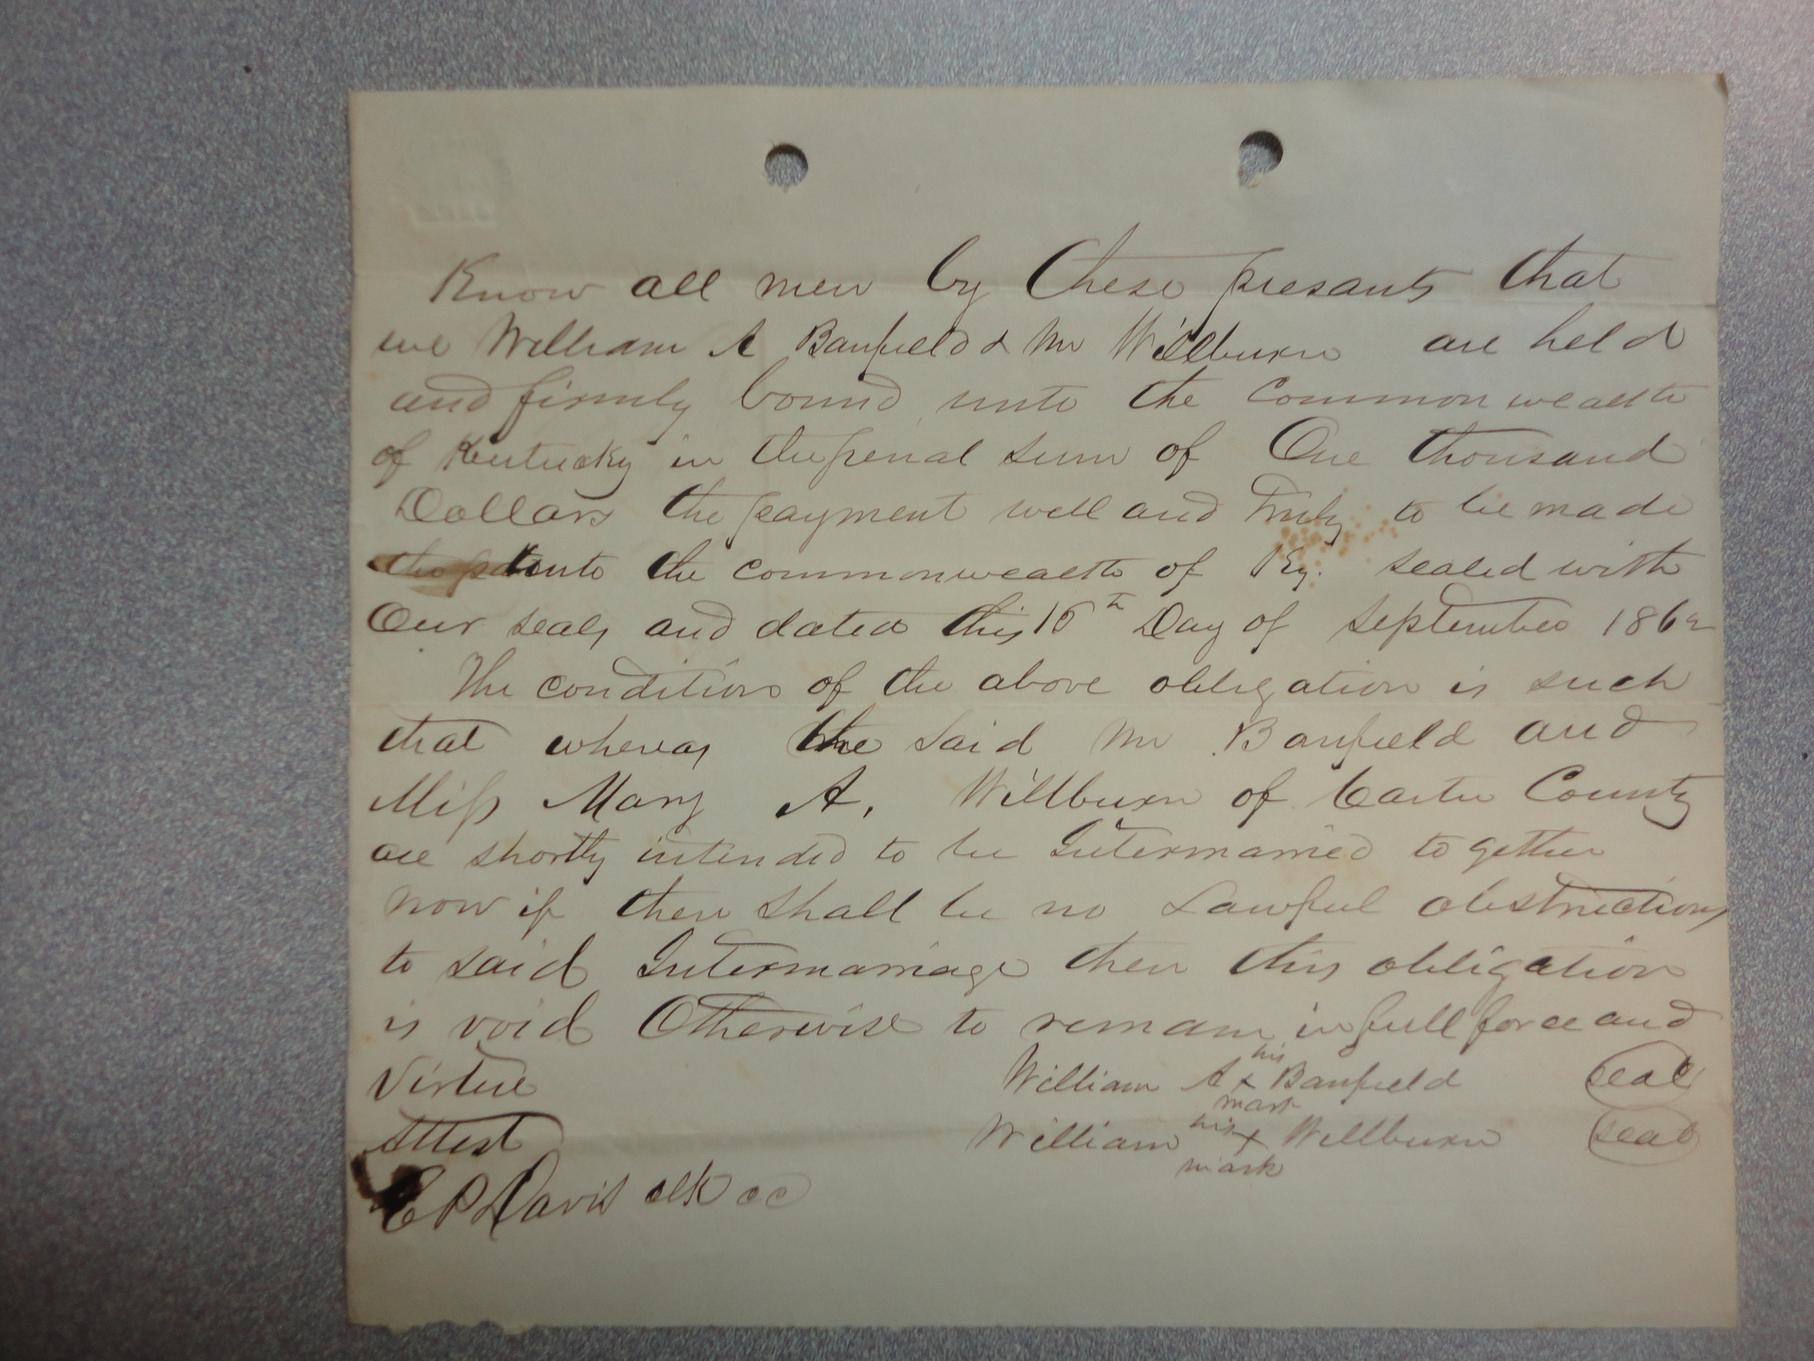 Know all men by these presants that
we William A Banfield & Wm Willburn are held
and firmly bound unto the Commonwealth
of Kentucky in the penal sum of One thousand
Dollars the payment well and Truly to be made
unto the commonwealth of Ky. sealed with
Our seals and dated this 15th Day of September 1862
The condition of the above obligation is such
that whereas the said Wm Banfield and
Miss Mary A. Willburn of Carter County
are shortly intended to be Intermarried together
now if there shall be no Lawful obstructions
to said Intermarriage then this obligation
is void Otherwise to remain in full force and
Virtue William A his x mark Banfield seal
Attest William his x mark Willburn seal
C P Davis clk cc